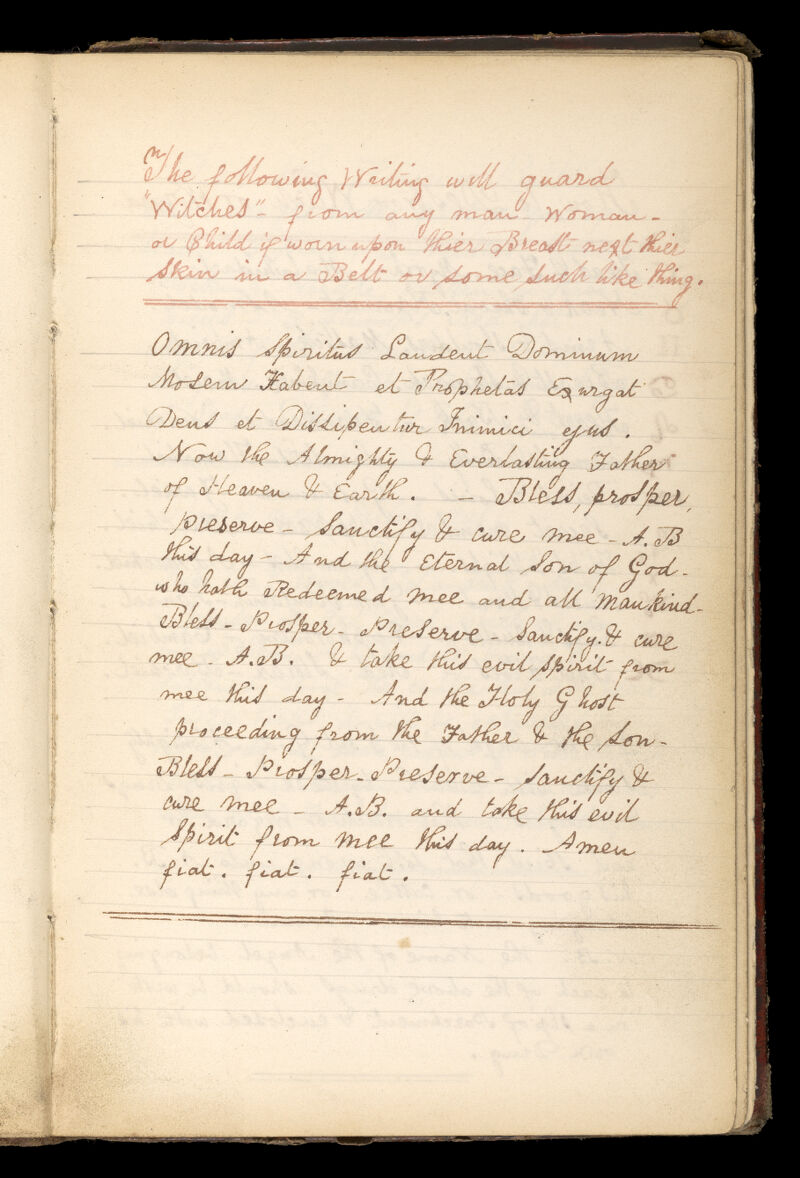 The following Writing will guard
"Witches" - from any man - Woman -
or Child if worn upon thier Breast next thier
Skin in a Belt or some such like thing.
Omnis Spiritus Laudent Dominum
Mosem Habent et Prophetas Exurgat
Deus et Dissipentur Inimici ejus.
Now the Almighty & Everlasting Father
of Heaven & Earth. - Bless, prosper,
preserve - Sanctify & cure mee - A.B
this day - And the Eternal Son of God -
who hath Redeemed mee and all Mankind -
Bless - Prosper - Preserve - Sanctify. & cure
mee - A.B. & take this evil spirit from
mee this day - And the Holy Ghost
proceeding from the Father & the Son -
Bless - Prosper - Preserve - Sanctify &
cure mee - A.B. and take this evil
Spirit from mee this day. Amen
fiat. fiat. fiat.